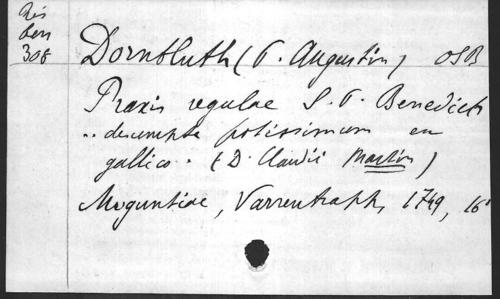 Rés
ben
308
Dornbluth (P. Augustin) OSB
Praxis regulae S. P. Benedicti
.. decumpta potissimum en
gallico. (D. Claudii Martin)
Moguntiae, Varrentraph, 1749, 16°